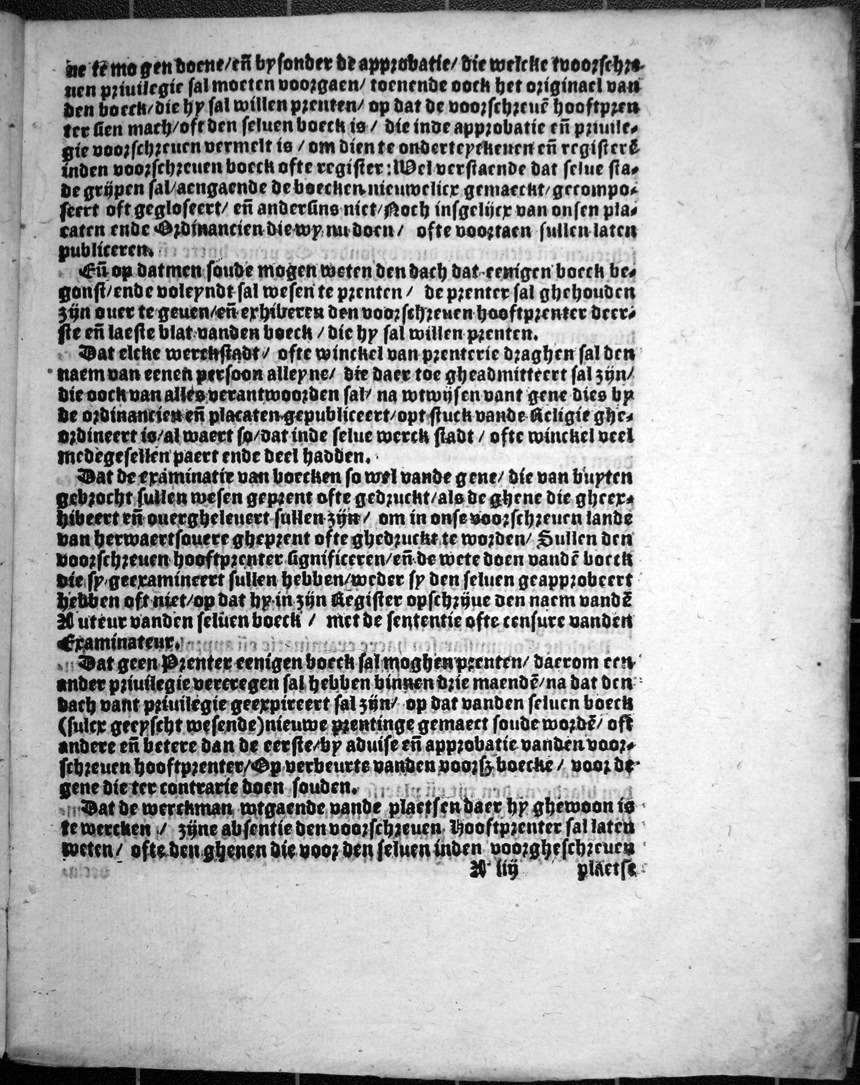 ne te mo gen doene/ eñ by sonder de approbatie/ die welcke tvoorschre-
uen priuilegie sal moeten voorgaen/ toenende oock het originael van
den boeck/ die hy sal willen prenten/ op dat de voorschreuē hooftpren
ter sien mach/ oft den seluen boeck is / die inde approbatie eñ priuile-
gie voorschreuen vermelt is / om dien te onderteyckenen eñ registerē
inden voorschreuen boeck ofte register: Wel verstaende dat selue sta-
de grijpen sal/ aengaende de boecken nieuwelicx gemaeckt/ gecompo-
seert oft gegloseert/ eñ andersins niet/ Noch insgelijcx van onsen pla-
caten ende Ordinancien die wy nu doen / ofte voortaen sullen laten
publiceren.
Eñ op datmen soude mogen weten den dach dat eenigen boeck be-
gonst/ ende voleyndt sal wesen te prenten / de prenter sal ghehouden
zijn ouer te geuen/ eñ exhiberen den voorschreuen hooftprenter deer-
ste eñ laeste blat vanden boeck / die hy sal willen prenten.
Dat elcke werckstadt / ofte winckel van prenterie draghen sal den
naem van eenen persoon alleyne/ die daer toe gheadmitteert sal zijn/
die oock van alles verantwoorden sal/ na wtwijsen vant gene dies by
de ordinancien eñ placaten gepubliceert/ opt stuck vande Religie ghe-
ordineert is/ al waert so/ dat inde selue werck stadt / ofte winckel veel
medegesellen paert ende deel hadden.
Dat de examinatie van boecken so wel vande gene/ die van buyten
gebrocht sullen wesen geprent ofte gedruckt/ als de ghene die gheex-
hibeert eñ ouergheleuert sullen zijn / om in onse voorschreuen lande
van herwaertsouere gheprent ofte ghedruckt te worden/ Sullen den
voorschreuen hooftprenter significeren/ eñ de wete doen vandē boeck
die sy geexamineert sullen hebben/ weder sy den seluen geapprobeert
hebben oft niet/ op dat hy in zijn Register opschrijue den naem vandē
Auteur vanden seluen boeck / met de sententie ofte censure vanden
Examinateur.
Dat geen Prenter eenigen boeck sal moghen prenten/ daerom een
ander priuilegie vercregen sal hebben binnen drie maendē/ na dat den
dach vant priuilegie geexpireert sal zijn/ op dat vanden seluen boeck
(sulcx geeyscht wesende) nieuwe prentinge gemaect soude wordē/ oft
andere eñ betere dan de eerste/ by aduise eñ approbatie vanden voor-
schreuen hooftprenter/ Op verbeurte vanden voorsz boecke / voor de
gene die ter contrarie doen souden.
Dat de werckman wtgaende vande plaetsen daer hy ghewoon is
te wercken / zijne absentie den voorschreuen Hooftprenter sal laten
weten/ ofte den ghenen die voor den seluen inden voorgheschreuen
A iij plaetse